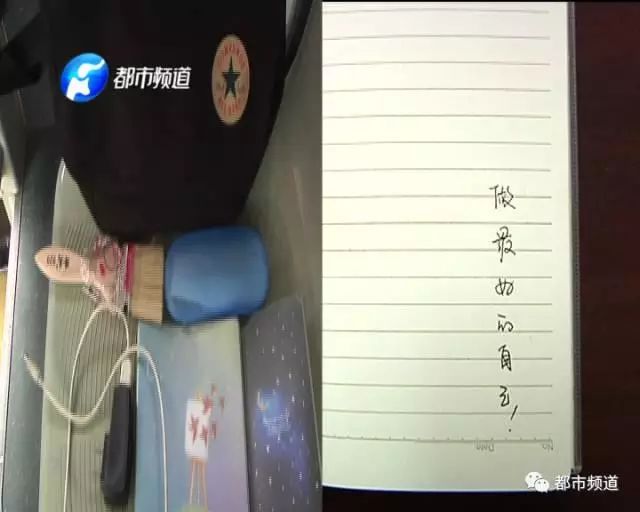 都市频道
做最好的自己！
No.
Date
都市频道